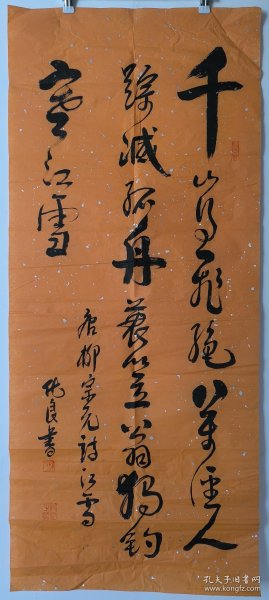 千山鸟飞绝万径人
踪灭孤舟蓑笠翁独钓
寒江雪
唐柳宗元诗江雪
书
孔夫子旧书网